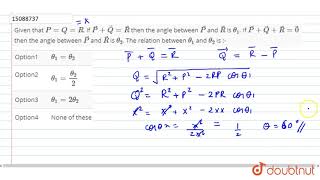 15088737
= x
Given that P = Q = R. If P⃗ + Q⃗ = R⃗ then the angle between P⃗ and R⃗ is θ₁. If P⃗ + Q⃗ + R⃗ = 0⃗
then the angle between P⃗ and R⃗ is θ₂. The relation between θ₁ and θ₂ is :-
Option1 θ₁ = θ₂
Option2 θ₁ = θ₂/2
Option3 θ₁ = 2θ₂
Option4 None of these
P̅ + Q̅ = R̅ Q⃗ = R̅ - P̅
Q = √R² + P² - 2RP cos θ₁
Q² = R² + P² - 2PR cos θ₁
x² = x² + x² - 2xx cos θ₁
cos θ₁ = x²/2x² = 1/2 θ = 60° //
doubtnut